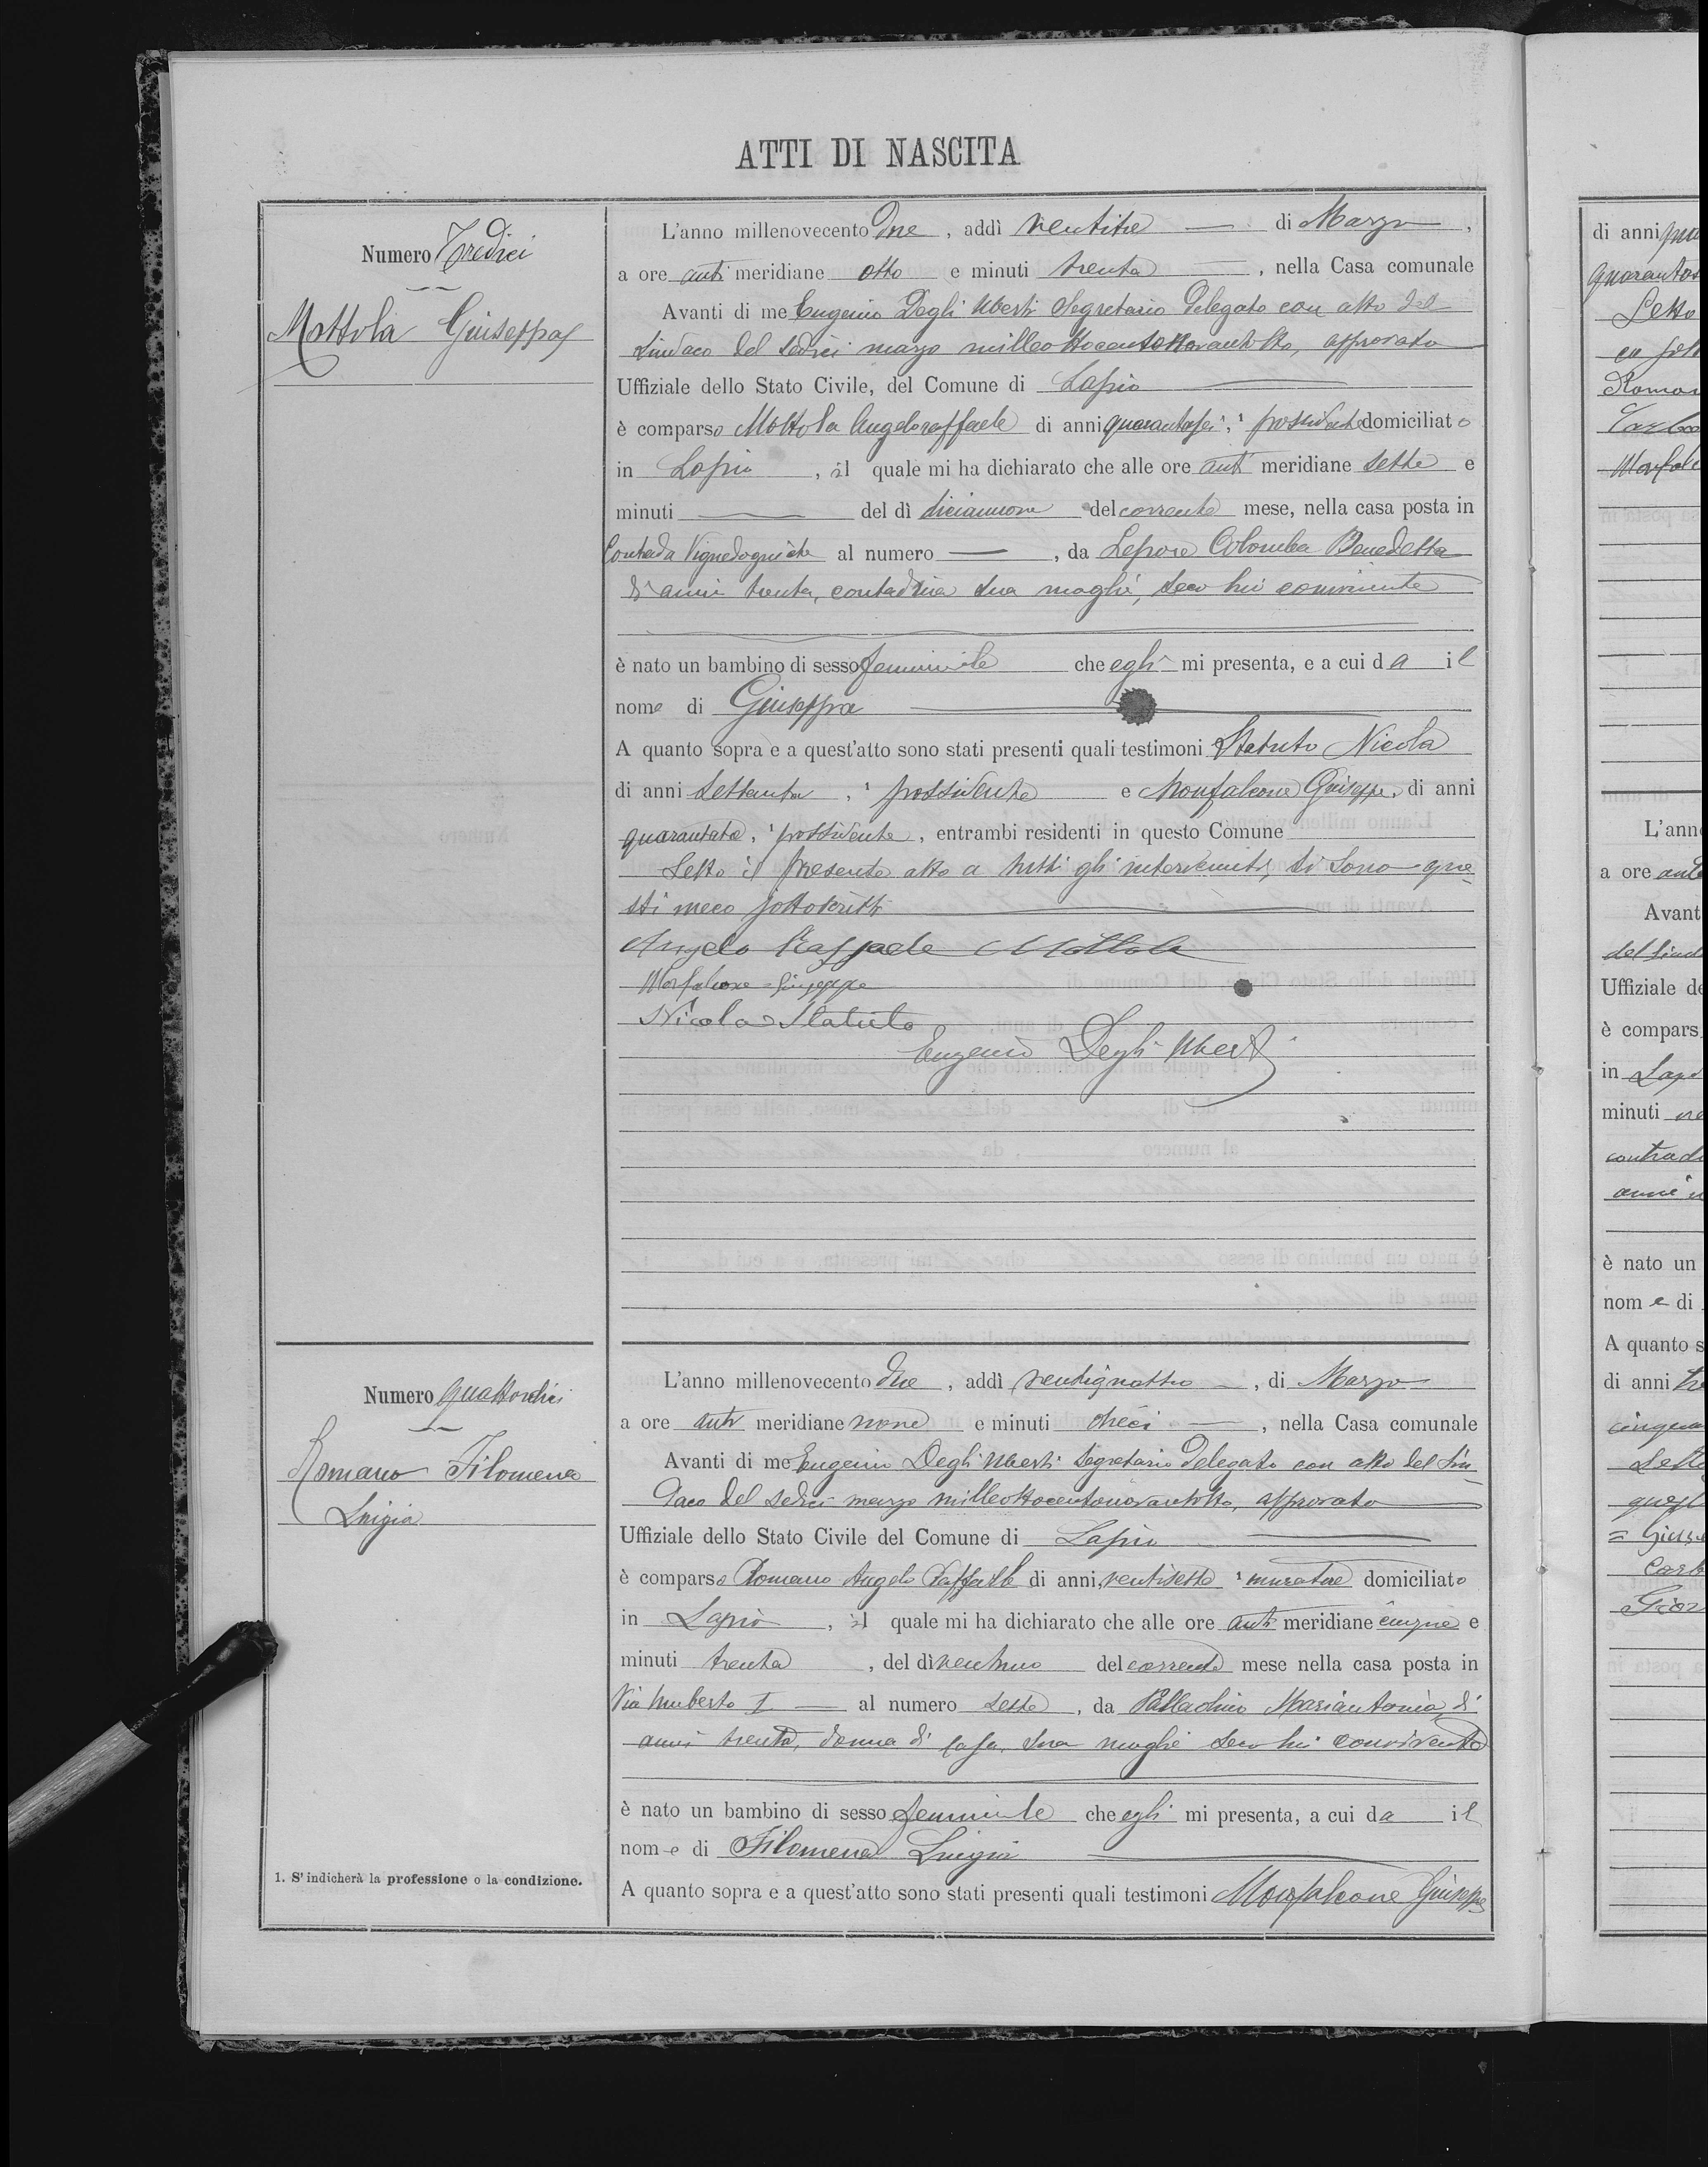 ATTI DI NASCITA
Numero Tredici
Mottola Giuseppa
L'anno millenovecento due, addì ventitre di Marzo,
a ore anti meridiane otto e minuti trenta, nella Casa comunale
Avanti di me Eugenio Degli Uberti Segretario Delegato con atto del
Sindaco del sedici marzo milleottocentonovantotto, approvato
Uffiziale dello Stato Civile, del Comune di Lapio
è comparso Mottola Angeloraffaele di anni quarantasei, ¹ possidente domiciliato
in Lapio, il quale mi ha dichiarato che alle ore anti meridiane sette e
minuti — del dì diciannove del corrente mese, nella casa posta in
Contrada al numero —, da Lepore Colomba Benedetta
di anni trenta, contadina sua moglie, seco lui convivente
è nato un bambino di sesso femminile che egli mi presenta, e a cui dà il
nome di Giuseppa
A quanto sopra e a quest'atto sono stati presenti quali testimoni Statuto Nicola
di anni settanta, ¹ possidente e Monfalcone Giuseppe, di anni
¹ possidente, entrambi residenti in questo Comune
Letto il presente atto a tutti gli intervenuti, si sono que
sti meco sottoscritti
Angelo Raffaele Mottola
Monfalcone Giuseppe
Nicola Statuto
Eugenio Degli Uberti
Numero quattordici
Romano Filomena
Luigia
L'anno millenovecento due, addì ventiquattro, di Marzo
a ore anti meridiane nove e minuti dieci, nella Casa comunale
Avanti di me Eugenio Degli Uberti Segretario Delegato con atto del Sin
daco del sedici marzo milleottocentonovantotto, approvato
Uffiziale dello Stato Civile del Comune di Lapio
è comparso Romano Angelo Raffaele di anni ventisette ¹ muratore domiciliato
in Lapio, il quale mi ha dichiarato che alle ore anti meridiane cinque e
minuti trenta, del dì ventuno del corrente mese nella casa posta in
Via Umberto I al numero sette, da Palladino Mariantonia, di
anni trenta, donna di casa, sua moglie seco lui convivente
è nato un bambino di sesso femminile che egli mi presenta, a cui da il
nome di Filomena Luigia
A quanto sopra e a quest'atto sono stati presenti quali testimoni Monfalcone Giuseppe
1. S'indicherà la professione o la condizione.
di anni
Letto
L'ann
a ore ant
Avant
del Sind
Uffiziale de
è compars
in Lapi
minuti
contrad
anni
è nato un
nome di
A quanto s
di anni